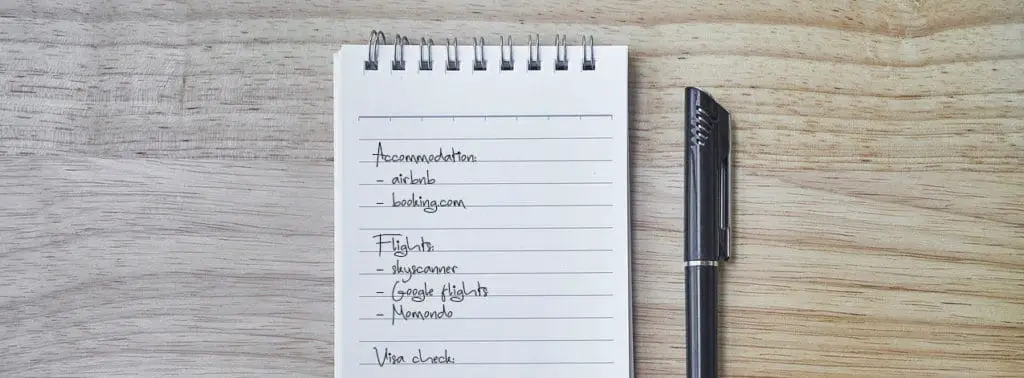 Accommodation:
- airbnb
- booking.com
Flights:
- skyscanner
- Google flights
- Momondo
Visa check: